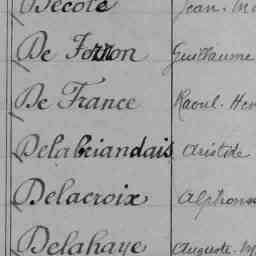 Decote Jean. M
De Forron Guillaume
De France Raoul. Hen
Delabriandais Aristide
Delacroix Alphonse
Delahaye Auguste. M